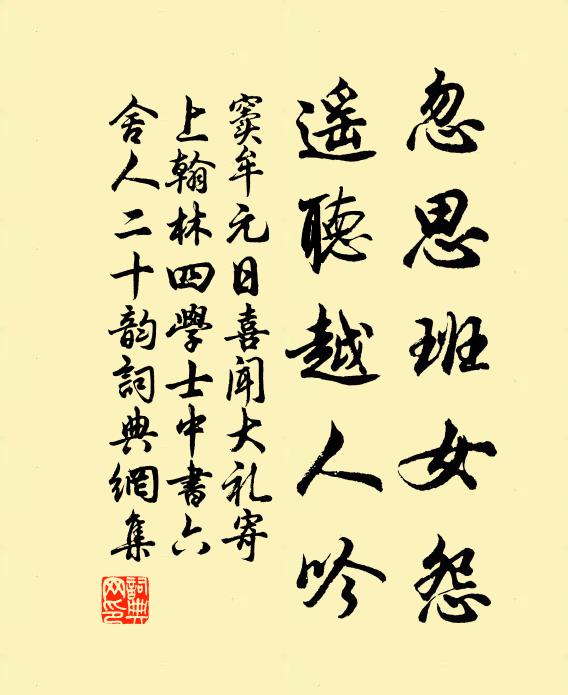 忽思班女怨
遥聽越人吟
窦牟元日喜闻大礼寄
上翰林四學士中書六
舍人二十韵詞典網集
詞典網印